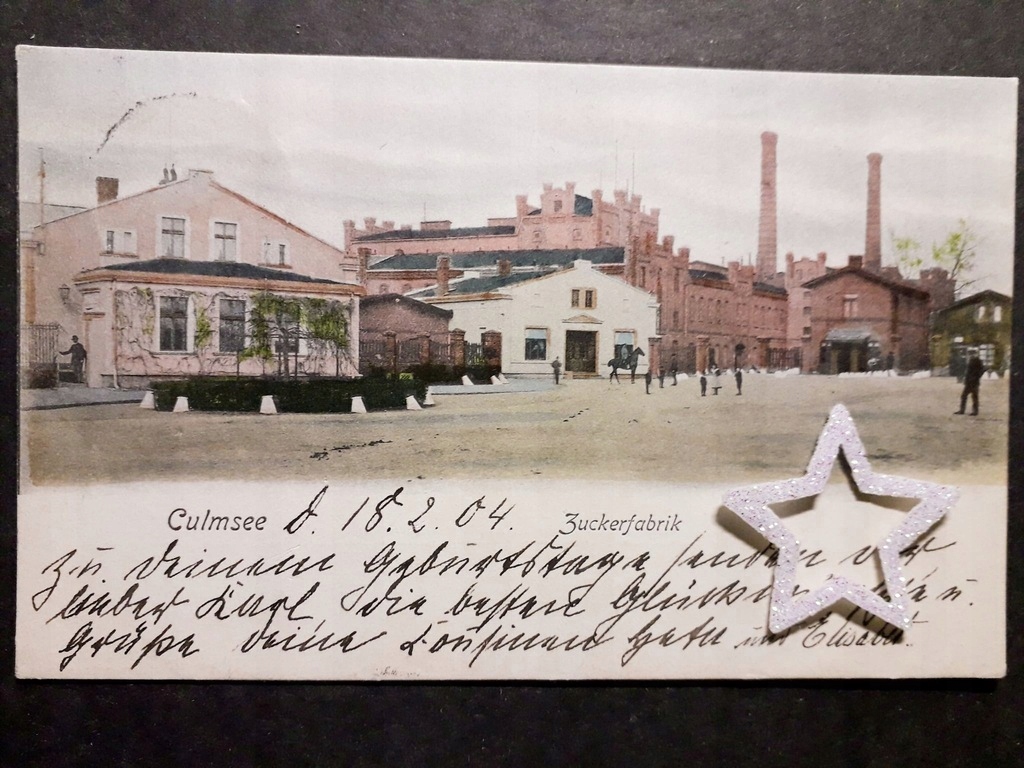 Culmsee d. 18. 2. 04. Zuckerfabrik
Zu deinem Geburtstage senden
lieber Karl die besten u.
Grüße deine Cousinen und Elisabet.